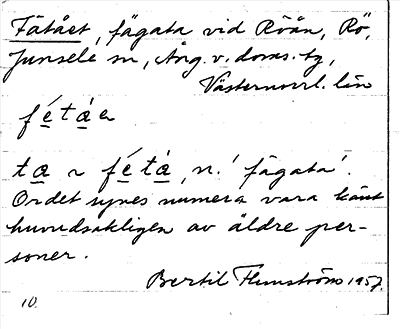 Fätået, fägata vid Röån, Rö,
Junsele sn, Ång. v. doms. tg,
Västernorrl. län
fétáe
ta ~ fétá, n. 'fägata'.
Ordet synes numera vara känt
huvudsakligen av äldre per-
soner.
Bertil Flemström 1957.
10.